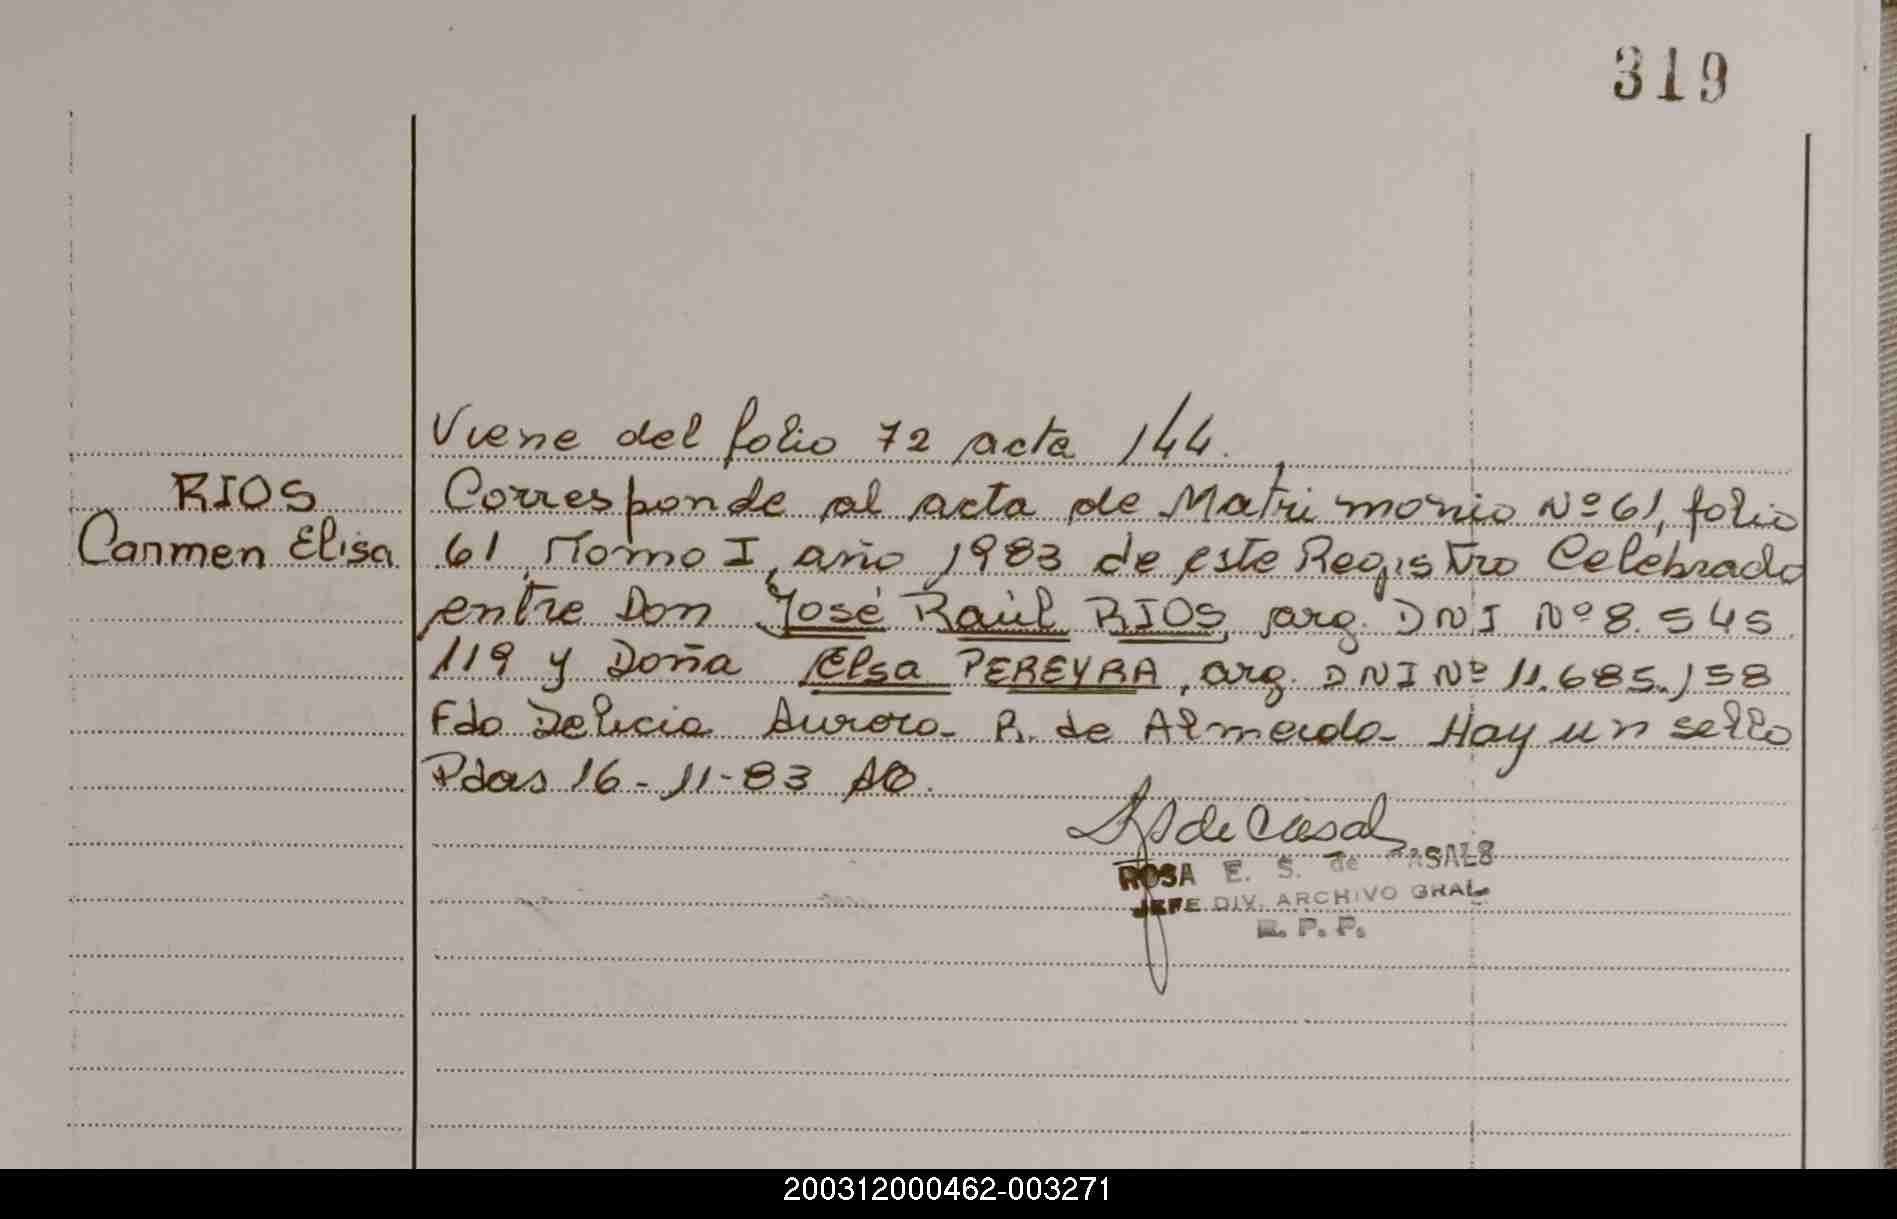 319
Viene del folio 72 acta 144.
RIOS
Carmen Elisa
Corresponde al acta de Matrimonio Nº 61, folio
61, Tomo I, año 1983 de este Registro Celebrado
entre Don José Raúl RIOS, arg. DNI Nº 8.545
119 y Doña Elsa PEREYRA, arg. DNI Nº 11.685.158
Fdo Delicia Aurora R. de Almeida - Hay un sello
Pdas 16-11-83
de Casals
ROSA E. S. de CASALS
JEFE DIV. ARCHIVO GRAL
R. P. P.
200312000462-003271